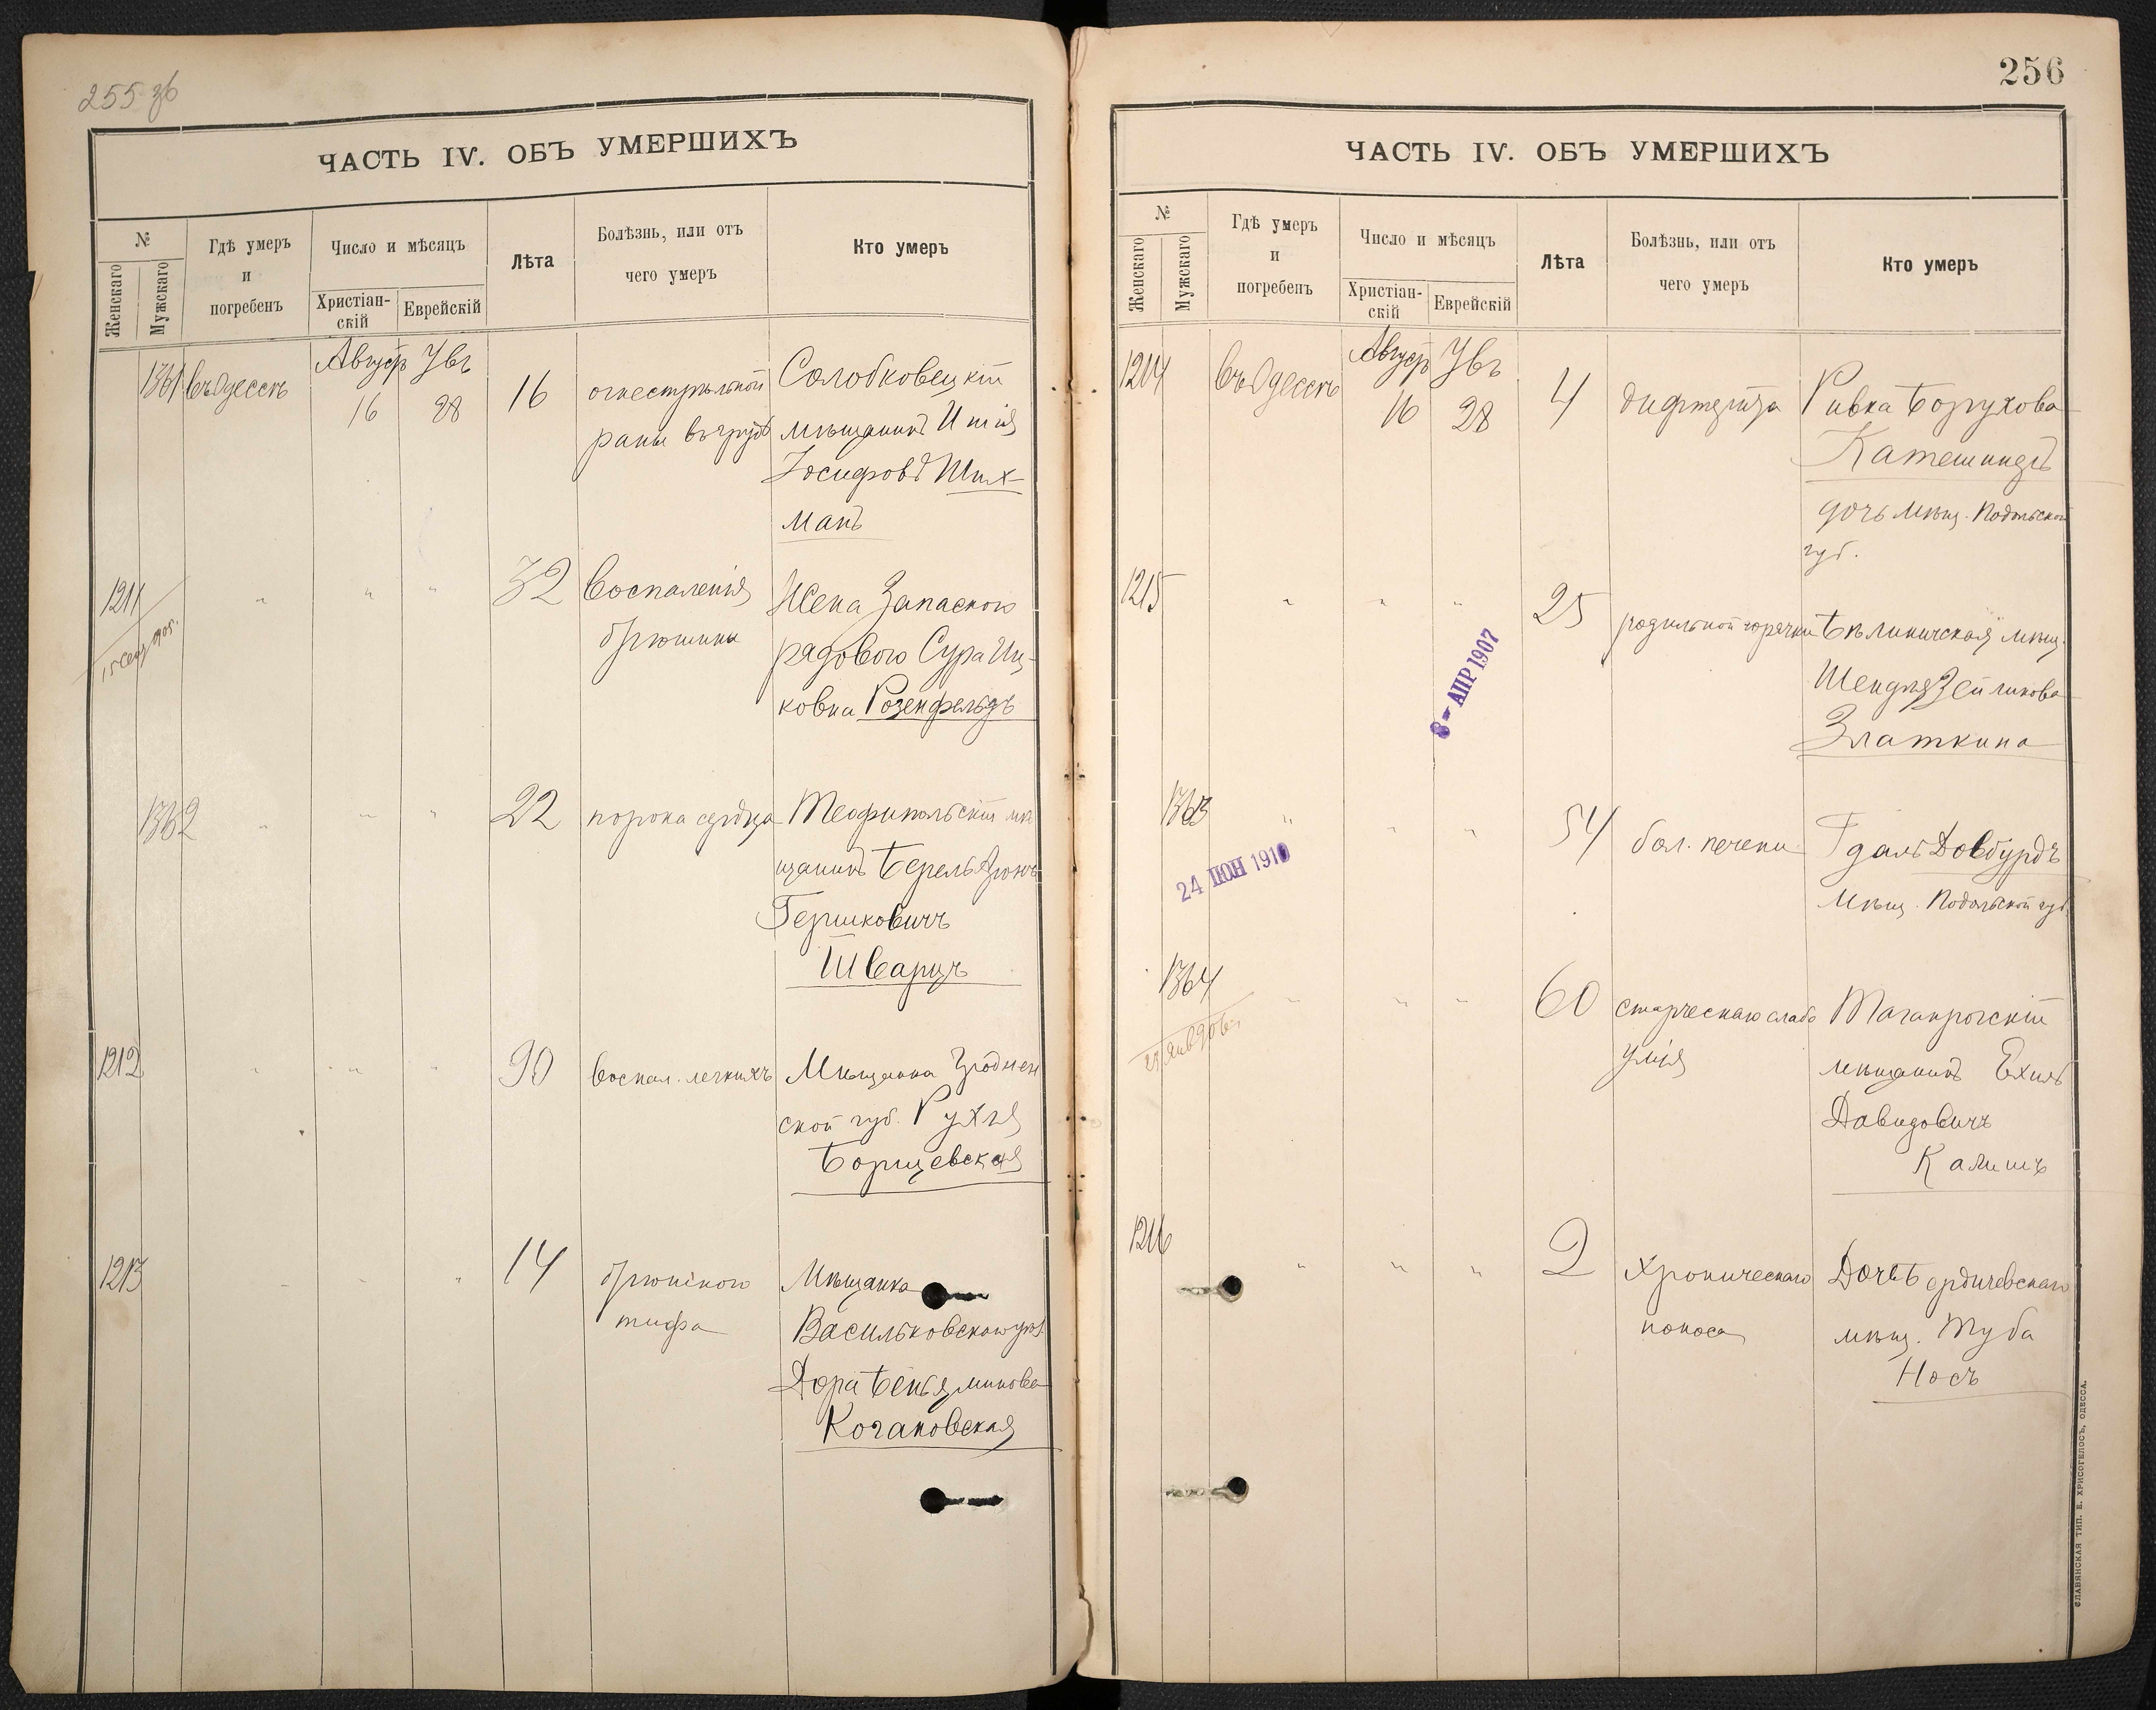 255 об
ЧАСТЬ IV. ОБЪ УМЕРШИХЪ
№
Женскаго
Мужскаго
Гдѣ умеръ
и
погребенъ
Число и мѣсяцъ
Христіан-
скій
Еврейскій
Лѣта
Болѣзнь, или отъ
чего умеръ
Кто умеръ
1361
въ Одессѣ
Август
16
Увъ
28
16
огнестрѣльной
раны въ грудь
Солобковецкій
мѣщанинъ
Іосифовъ Ших-
манъ
1211
15 Сент 905.
" " "
32
Воспаленія
брюшины
Жена Запасного
рядового Сура Иц-
ковна Розенфельдъ
1362
" " "
22
порока сердца
Теофипольскій мѣ
щанинъ Берель
Гершковичъ
Шварцъ
1212
" " "
90
воспал. легкихъ
Мѣщанка Гроднен
ской губ. Рухля
Борщевская
1213
" " "
14
брюшного
тифа
Мѣщанка
Васильковскаго уѣз.
Дора Беньяминова
Кочановская
256
ЧАСТЬ IV. ОБЪ УМЕРШИХЪ
№
Женскаго
Мужскаго
Гдѣ умеръ
и
погребенъ
Число и мѣсяцъ
Христіан-
скій
Еврейскій
Лѣта
Болѣзнь, или отъ
чего умеръ
Кто умеръ
1214
въ Одессѣ
Август
16
Увъ
28
4
дифтерита
Ривка Борухова
дочь мѣщ. Подольской
губ.
1215
" " "
8 - АПР 1907
25
родильной горячки
мѣщ.
Шендля Зейликова
Златкина
1363
24 ІЮН 1910
" " "
54
бол. печени
Гдаль Довбурдъ
мѣщ. Подольской губ.
1364
" " "
60
старческаго слабо
умія
Таганрогскій
мѣщанинъ Ехиль
Давидовичъ
Калишъ
1216
" " "
2
хроническаго
поноса
Дочь Бердичевскаго
мѣщ. Туба
Носъ
СЛАВЯНСКАЯ ТИП. Е. ХРИСОГЕЛОСЪ, ОДЕССА.